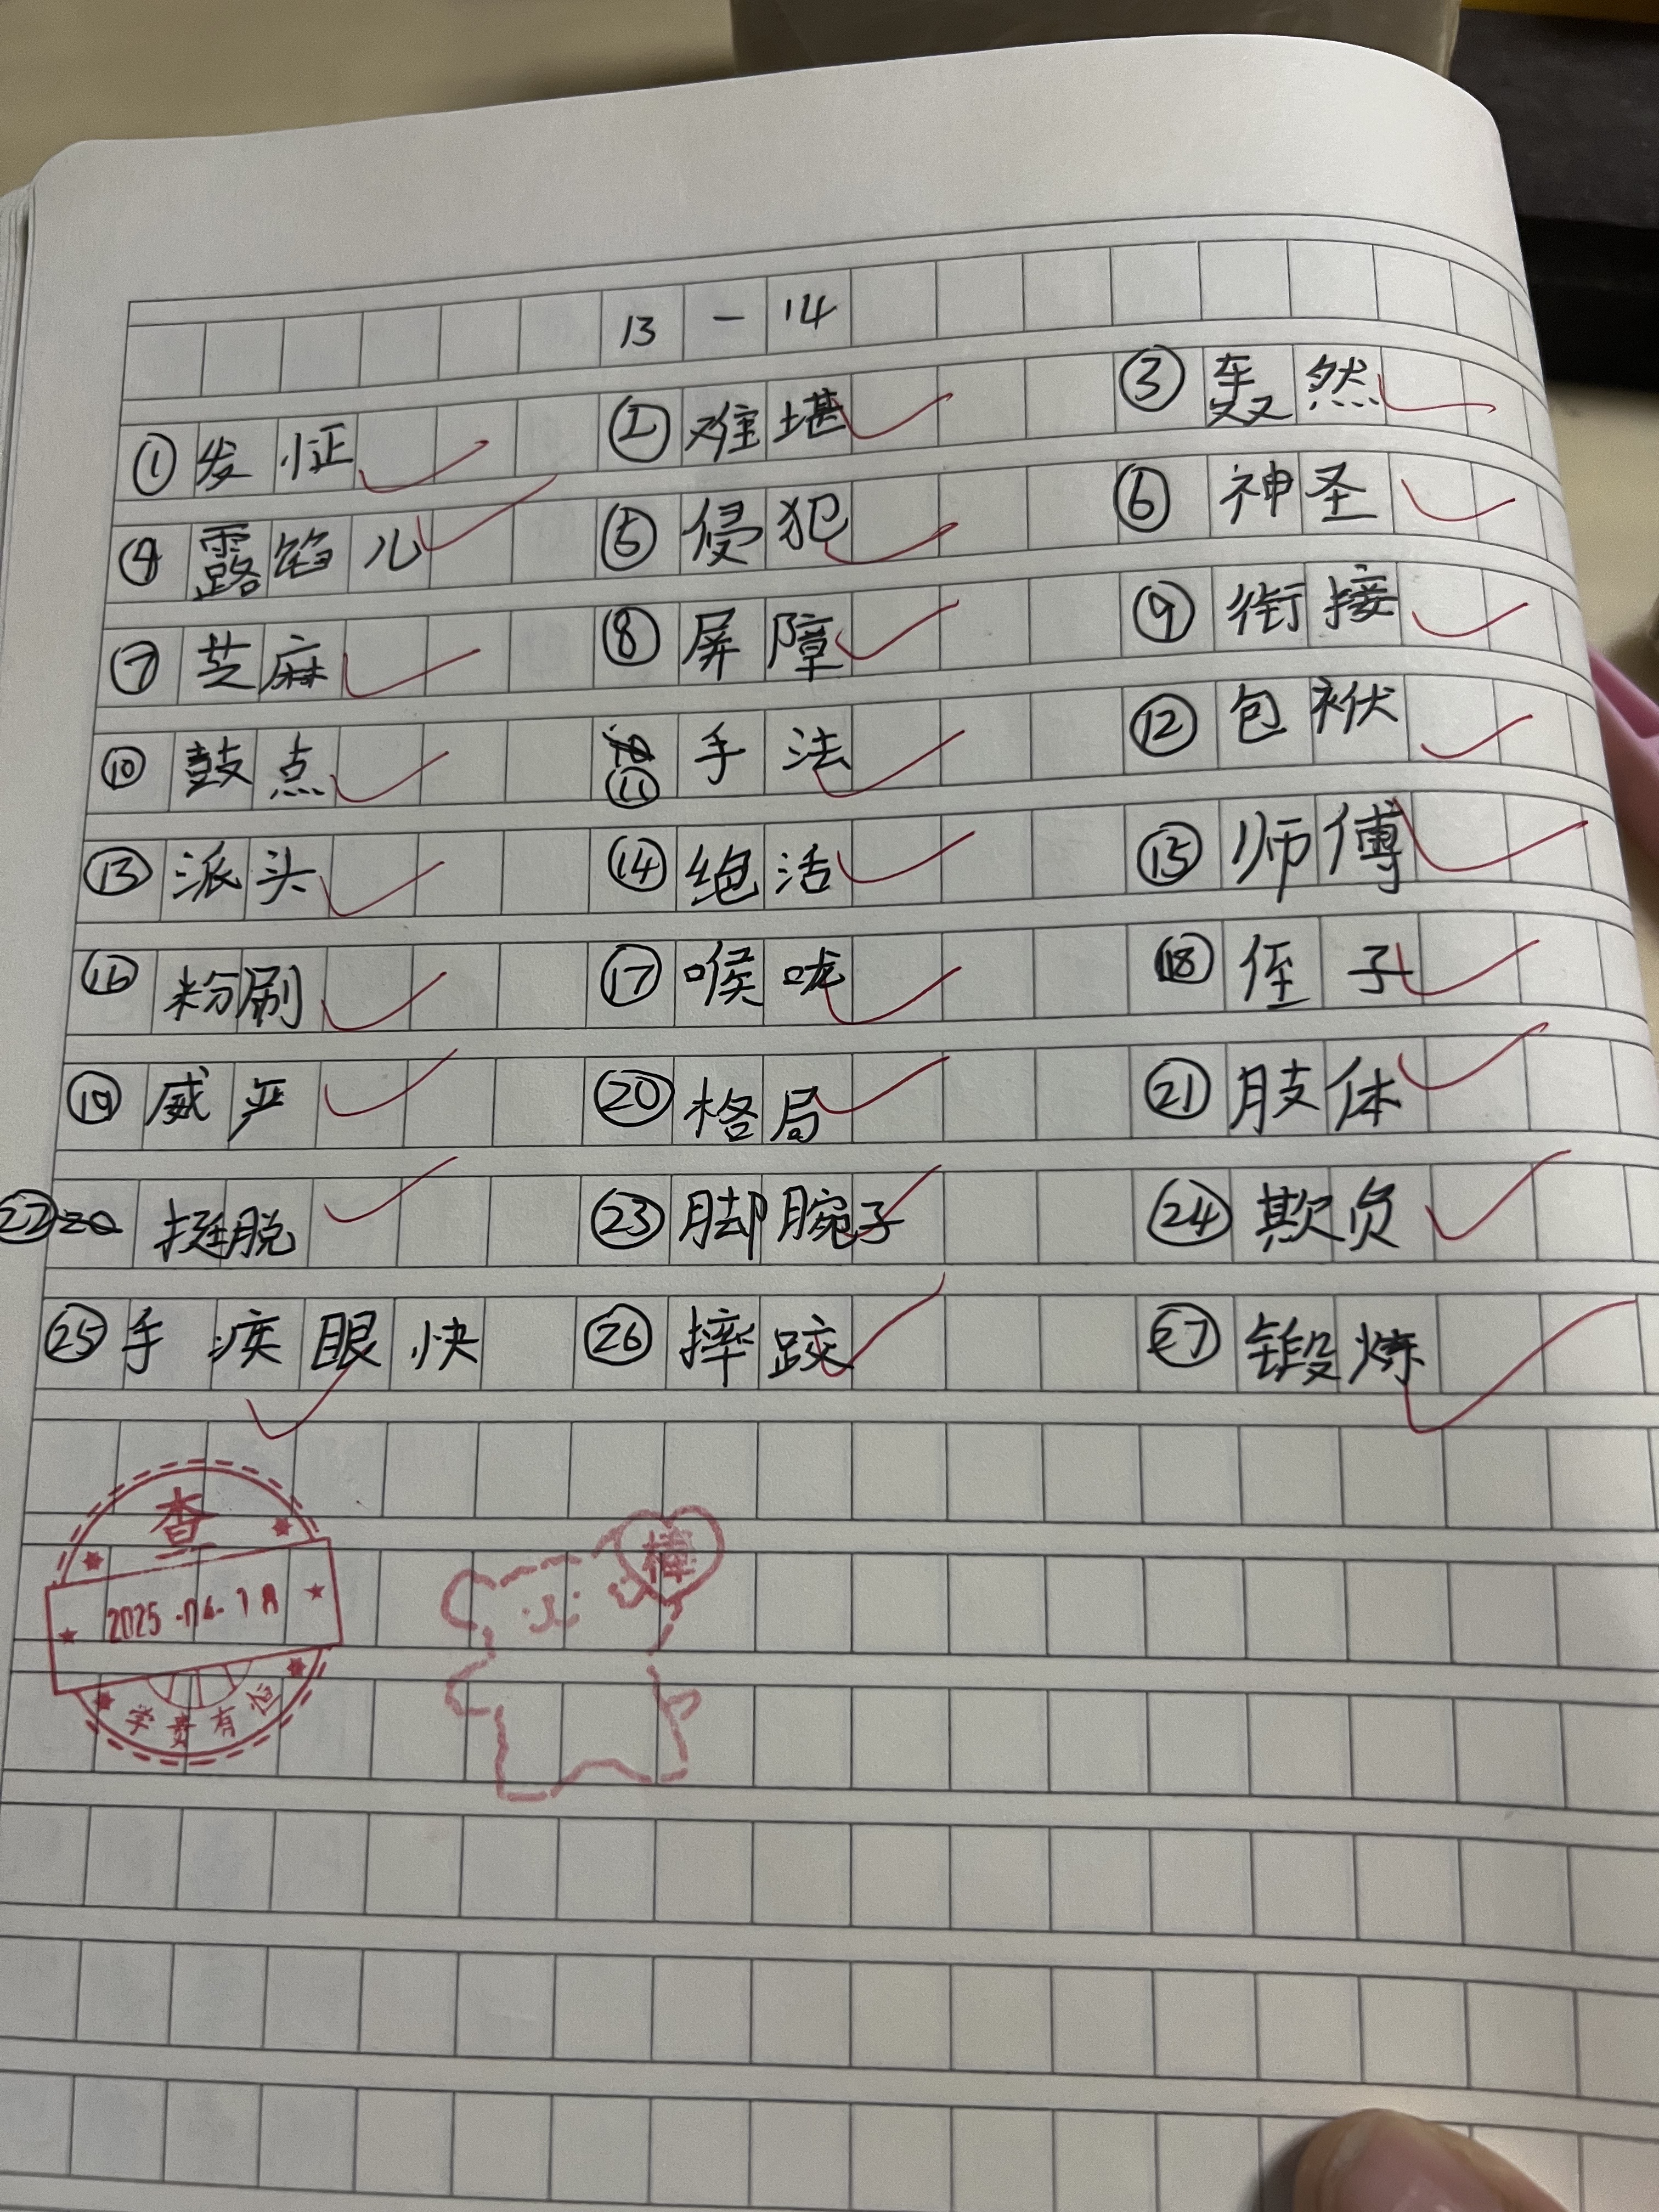 13 - 14
① 发怔 ② 难堪 ③ 轰然
④ 露馅儿 ⑤ 侵犯 ⑥ 神圣
⑦ 芝麻 ⑧ 屏障 ⑨ 衔接
⑩ 鼓点 ⑪ 手法 ⑫ 包袱
⑬ 派头 ⑭ 绝活 ⑮ 师傅
⑯ 粉刷 ⑰ 喉咙 ⑱ 侄子
⑲ 威严 ⑳ 格局 ㉑ 肢体
㉒ 挺脱 ㉓ 脚腕子 ㉔ 欺负
㉕ 手疾眼快 ㉖ 摔跤 ㉗ 锻炼
查
棒
2025-04-18
学贵有恒